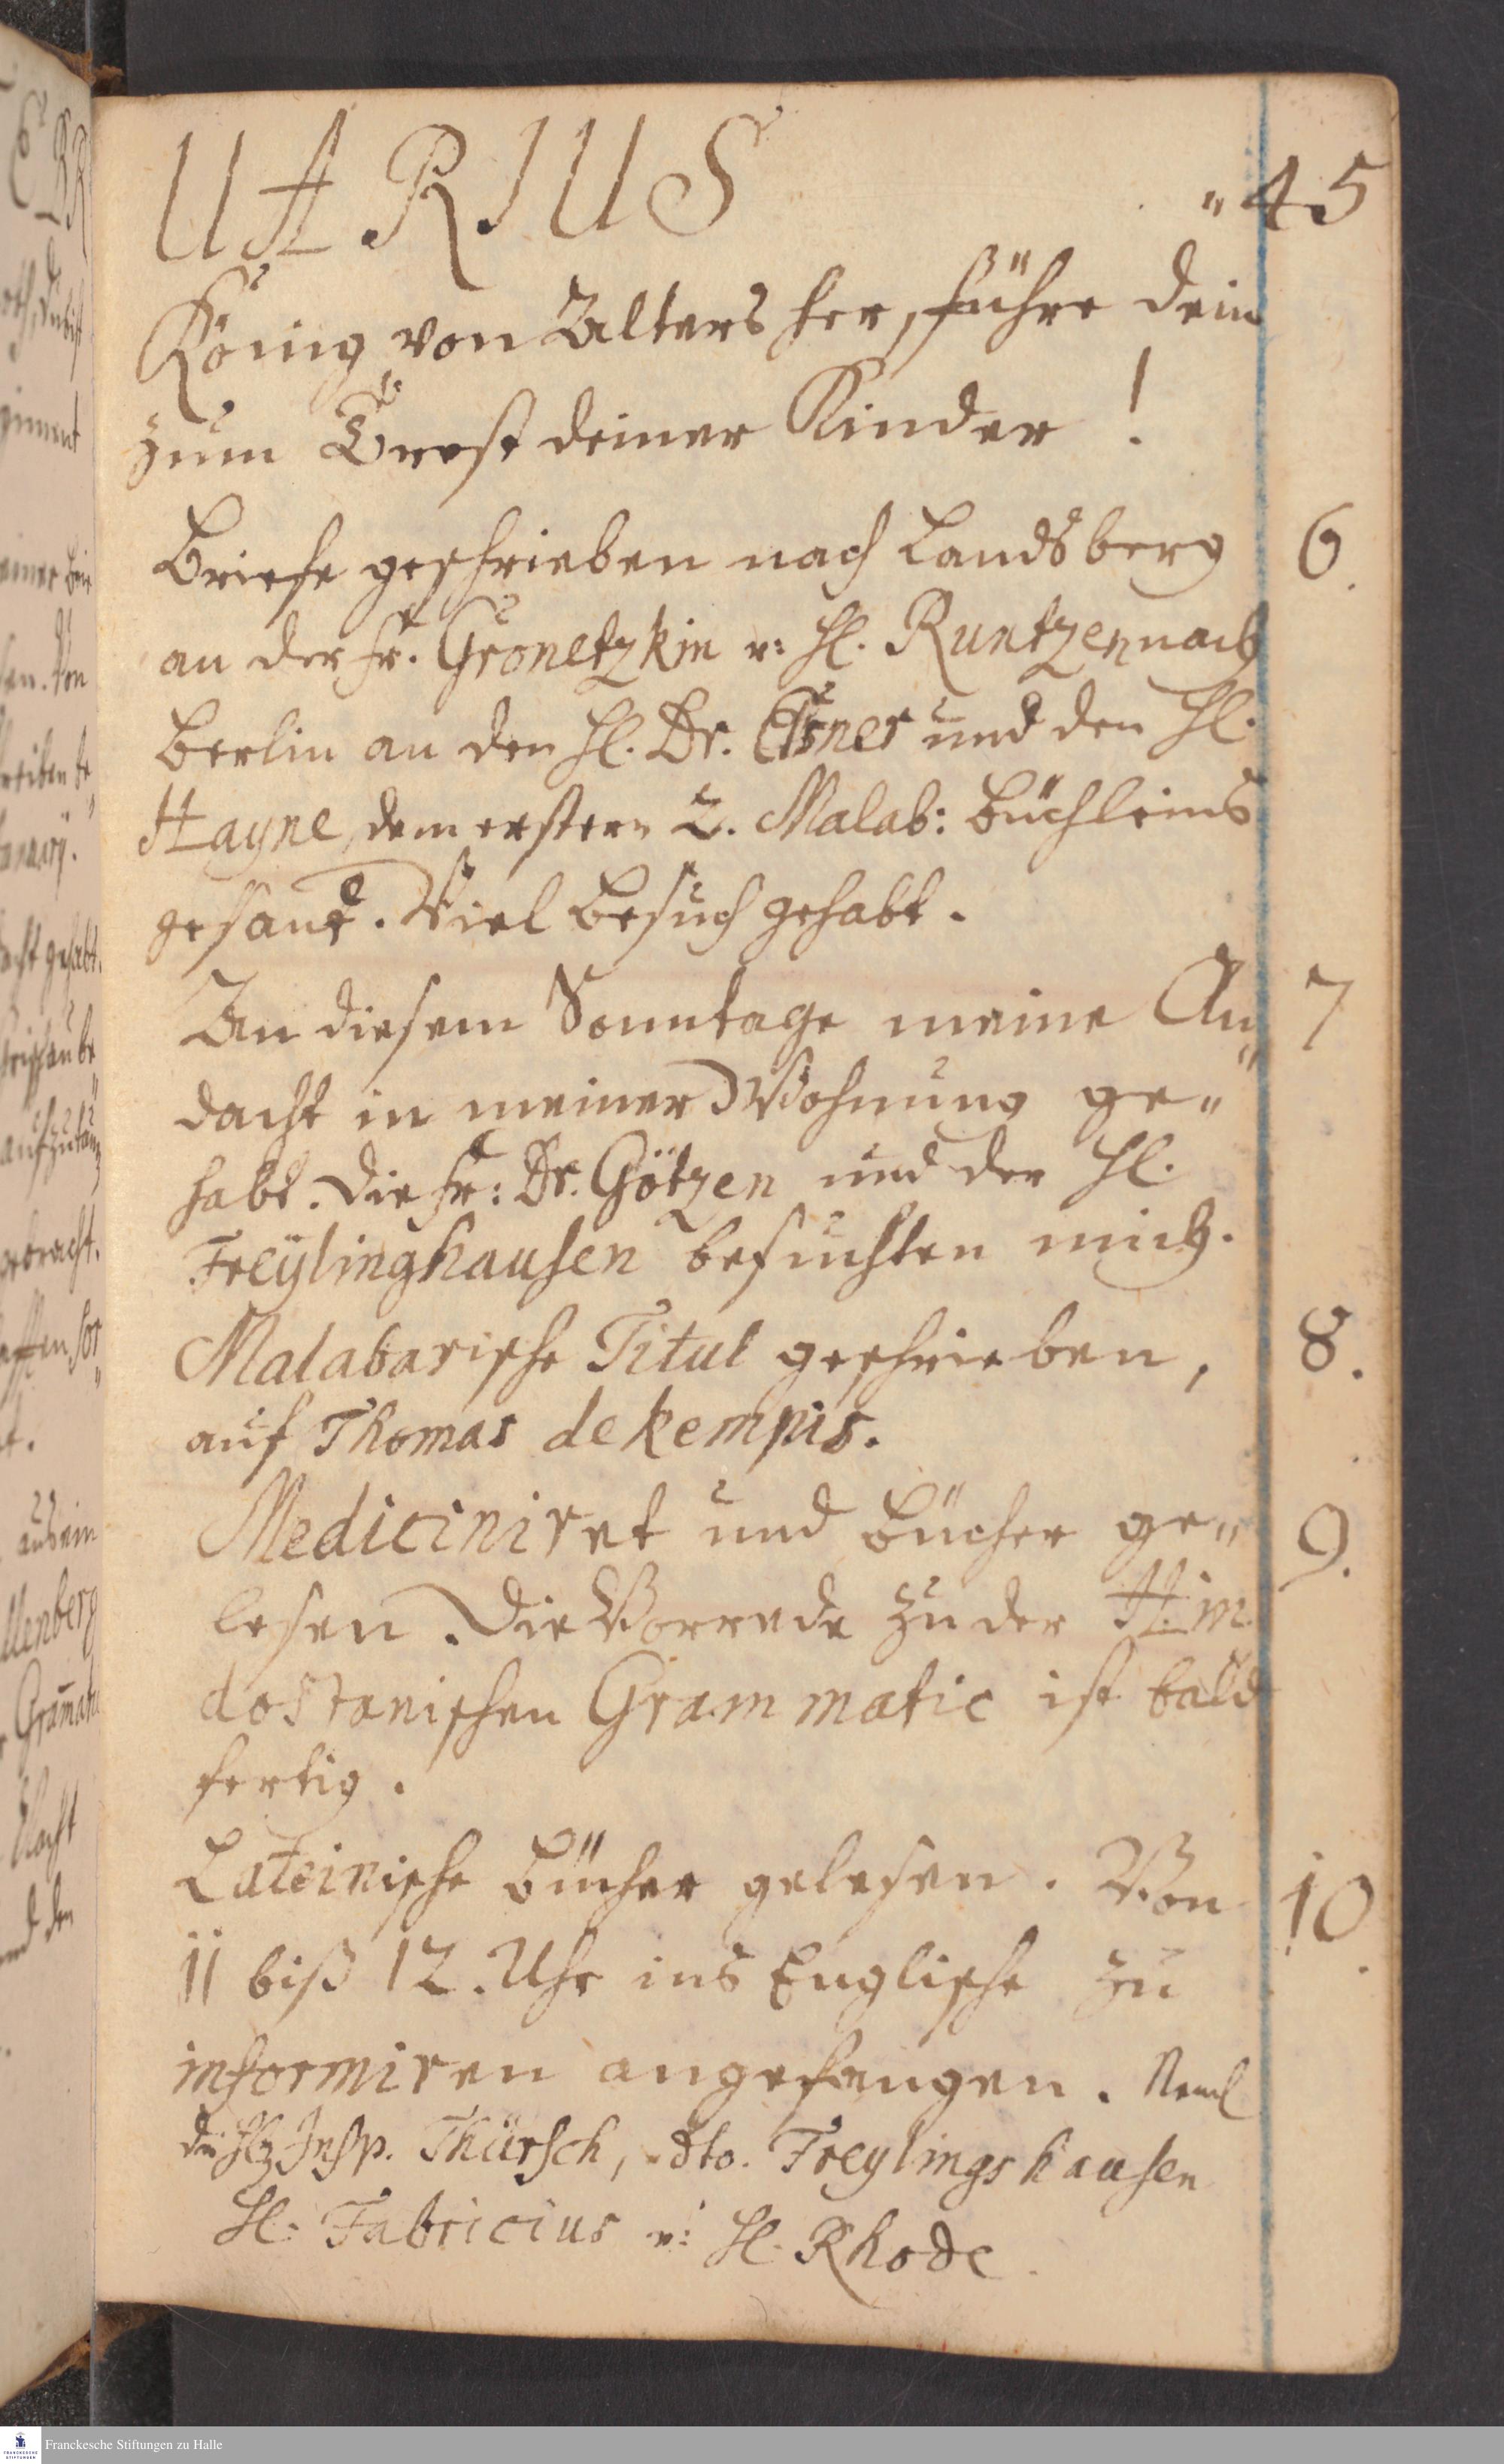 UARIUS
„45
König von Alters her, führe dein
zum Trost deiner Kinder!
Briefe geschrieben nach Landsberg 6.
an der Fr. Gronetzkin u: H. Runtzen nach
Berlin an den H. Dr. Elsner und den H.
Hayne, dem erstern 2. Malab: Büchleins
gesandt. Viel Besuch gehabt.
An diesem Sonntage meine An„ 7
dacht in meiner Wohnung ge„
habt. Die Fr: Dr. Götzen und der H.
Freÿlinghausen besuchten mich.
Malabarische Titul geschrieben, 8.
auf Thomas de Kempis.
Mediciniret und Bücher ge„ 9.
lesen. Die Vorrede zu der Hin
dostanischen Grammatic ist bald
fertig.
Lateinische Bücher gelesen. Von 10.
11 biß 12. Uhr ins Englische zu
informiren angefangen. Neml
die HH Insp. Thürsch, dto. Freylingshausen
H. Fabricius u: H. Rhode.
Franckesche Stiftungen zu Halle